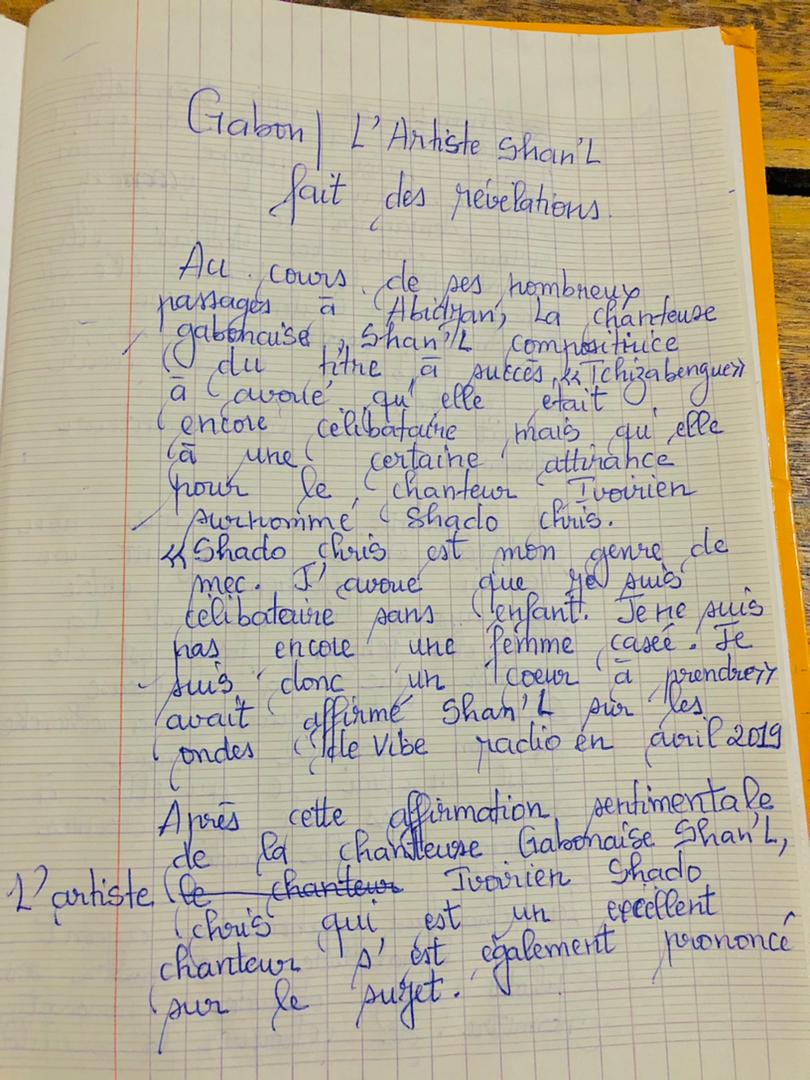 Gabon | L'Artiste Shan'L
fait des révélations.
Au cours de ses nombreux
passages à Abidjan, La chanteuse
gabonaise, Shan'L compositrice
du titre à succès « Tchizabengue »
à avoué qu'elle était
encore célibataire mais qu'elle
à une certaine attirance
pour le chanteur Ivoirien
surnommé Shado chris.
« Shado chris est mon genre de
mec. J'avoue que je suis
célibataire sans enfant. Je ne suis
pas encore une femme casée. Je
suis donc un coeur à prendre »
avait affirmé Shan'L sur les
ondes de Vibe radio en avril 2019
Après cette affirmation sentimentale
de la chanteuse Gabonaise Shan'L,
L'artiste le chanteur Ivoirien Shado
chris qui est un excellent
chanteur s'est également prononcé
sur le sujet.